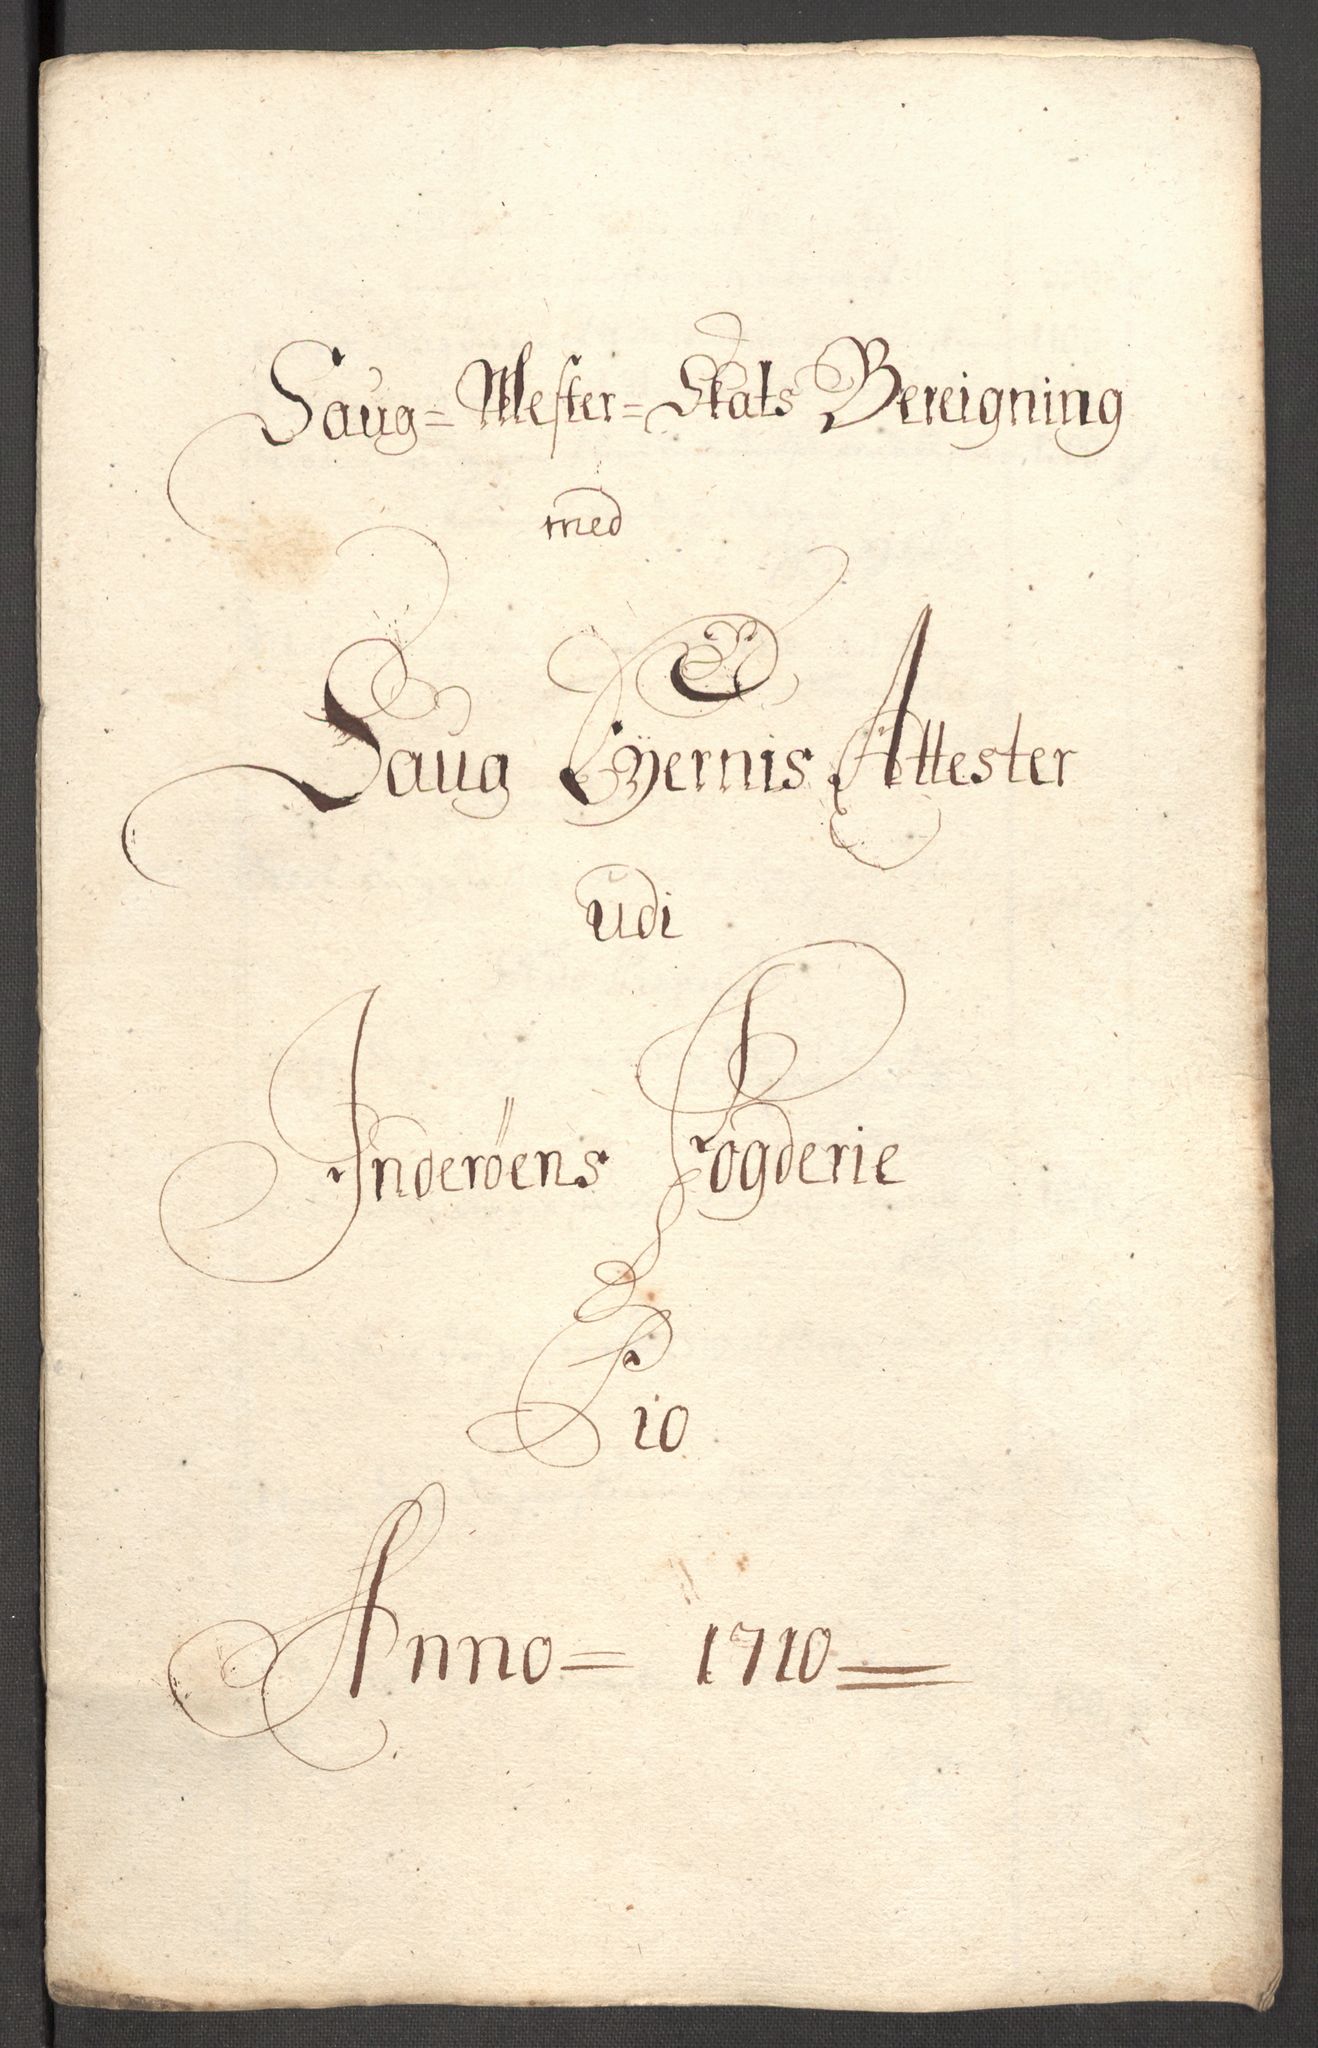 Saug= Mester= Skats Bereigning
med
Saug Eyernis Attester
udi
Inderöens Fogderie
Pio
Anno= 1710